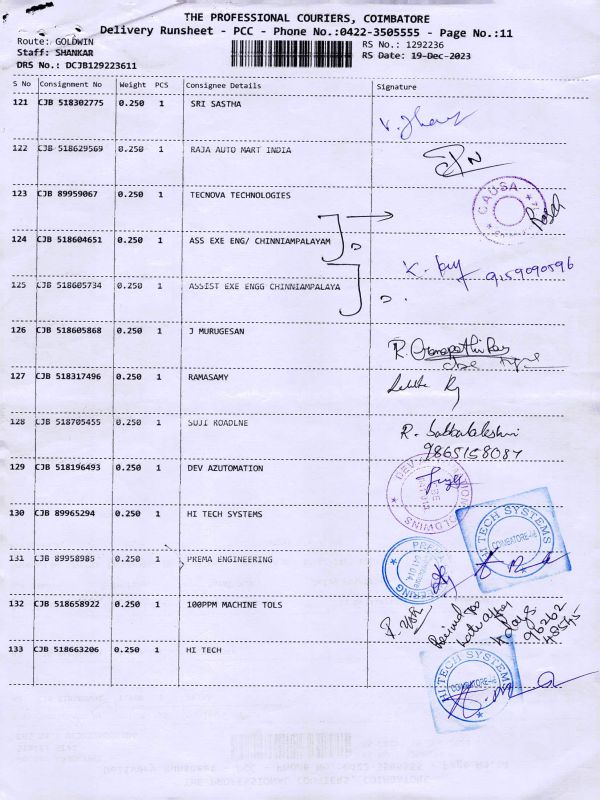 THE PROFESSIONAL COURIERS, COIMBATORE
Delivery Runsheet - PCC - Phone No.:0422-3505555 - Page No.:11
Route: GOLDWIN RS No.: 1292236
Staff: SHANKAR RS Date: 19-Dec-2023
DRS No.: DCJB129223611
S No Consignment No Weight PCS Consignee Details Signature
121 CJB 518302775 0.250 1 SRI SASTHA
122 CJB 518629569 0.250 1 RAJA AUTO MART INDIA
123 CJB 89959067 0.250 1 TECNOVA TECHNOLOGIES
CAUSA
124 CJB 518604651 0.250 1 ASS EXE ENG/ CHINNIAMPALAYAM
9159090596
125 CJB 518605734 0.250 1 ASSIST EXE ENGG CHINNIAMPALAYA
126 CJB 518605868 0.250 1 J MURUGESAN
127 CJB 518317496 0.250 1 RAMASAMY
128 CJB 518705455 0.250 1 SUJI ROADLNE
9865158087
129 CJB 518196493 0.250 1 DEV AZUTOMATION
130 CJB 89965294 0.250 1 HI TECH SYSTEMS
HI TECH SYSTEMS
COIMBATORE
131 CJB 89958985 0.250 1 PREMA ENGINEERING
132 CJB 518658922 0.250 1 100PPM MACHINE TOLS
133 CJB 518663206 0.250 1 HI TECH
HI TECH SYSTEMS
COIMBATORE